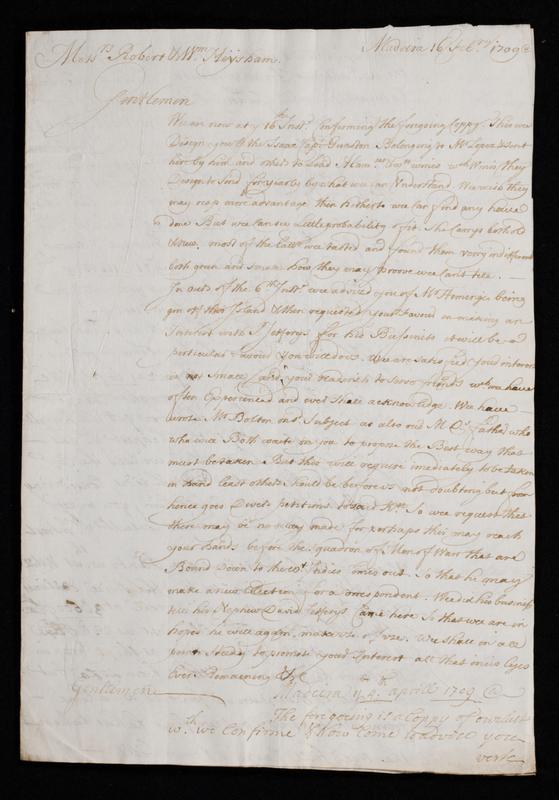 Mess.rs Robert & Wm Heysham. Madeira 16 Feb.ry 1709
Gentlemen
We are now at y.e 16th Inst. Confirming the foregoing Coppy. This we
Designe you ⅌ the Isaac Cap.t Gunston Belonging to Mr
him by him and others to Load wines w.th which they
Designe to send yearly by what we can Understand. We wish they
may reap more advantage then hitherto we can find any have
done But we can see Little probability of it. She Carrys both old
& New. most of the Latt.r we tasted and found them very indifferent
both green and small how they may proove we can't tell.
In ours of the 6th Inst. we advised you of Mr being
gon of this Island & then requested your favour in making an
Interest with S.r Jefferys for his Bussiness it will be a
particular favour you will doe us. We are satisfied your interest
is not small and your readiness to serve friends w.ch we have
often Experienced and ever shall acknowledge. We have
wrote Mr Bolton on s.d Subject as also our M.r Father who
who will Both waite on you to propose the Best way that
must be taken. But this will require imediately to be taken
in hand least others should be before us not doubting but from
hence goes Divers petitions to said Kt. So we request that
there may be noe way made for perhaps this may reach
your hands before the Squadron of Men of Warr that are
Bound down to the W.t Indies comes out. So that he may
make a new Election for a Correspondent. We did his business
till his Nephew David Jefferys Came here So that we are in
hopes he will again make use of us. We shall in all
points Study to promote your Interest all that in us Lyes
Ever Remaining &c
Madeira y.e 4.th Aprill 1709
Gentlemen
The foregoing is a Coppy of our last
w.ch we Confirme & now Come to advice you